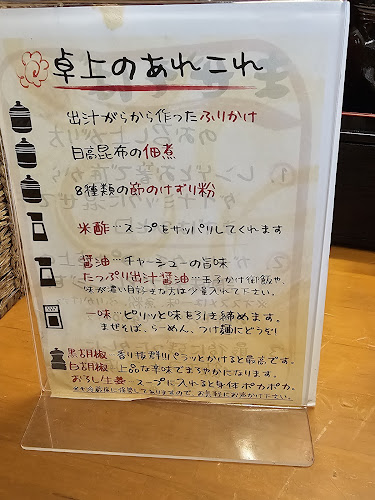 卓上のあれこれ
出汁がらから作ったふりかけ
日高昆布の佃煮
8種類の節のけずり粉
米酢…スープをサッパリしてくれます
醤油…チャーシューの旨味
たっぷり出汁醤油…玉子かけ御飯や、
味が濃い目好きな方は少量入れて下さい。
一味…ピリッと味を引き締めます。
まぜそば、らーめん、つけ麺にどうぞ
黒胡椒 香り抜群パラッとかけると最高です。
白胡椒 上品な辛味でまろやかになります。
おろし生姜…スープに入れると身体ポカポカ。
お気軽にお声かけ下さい。